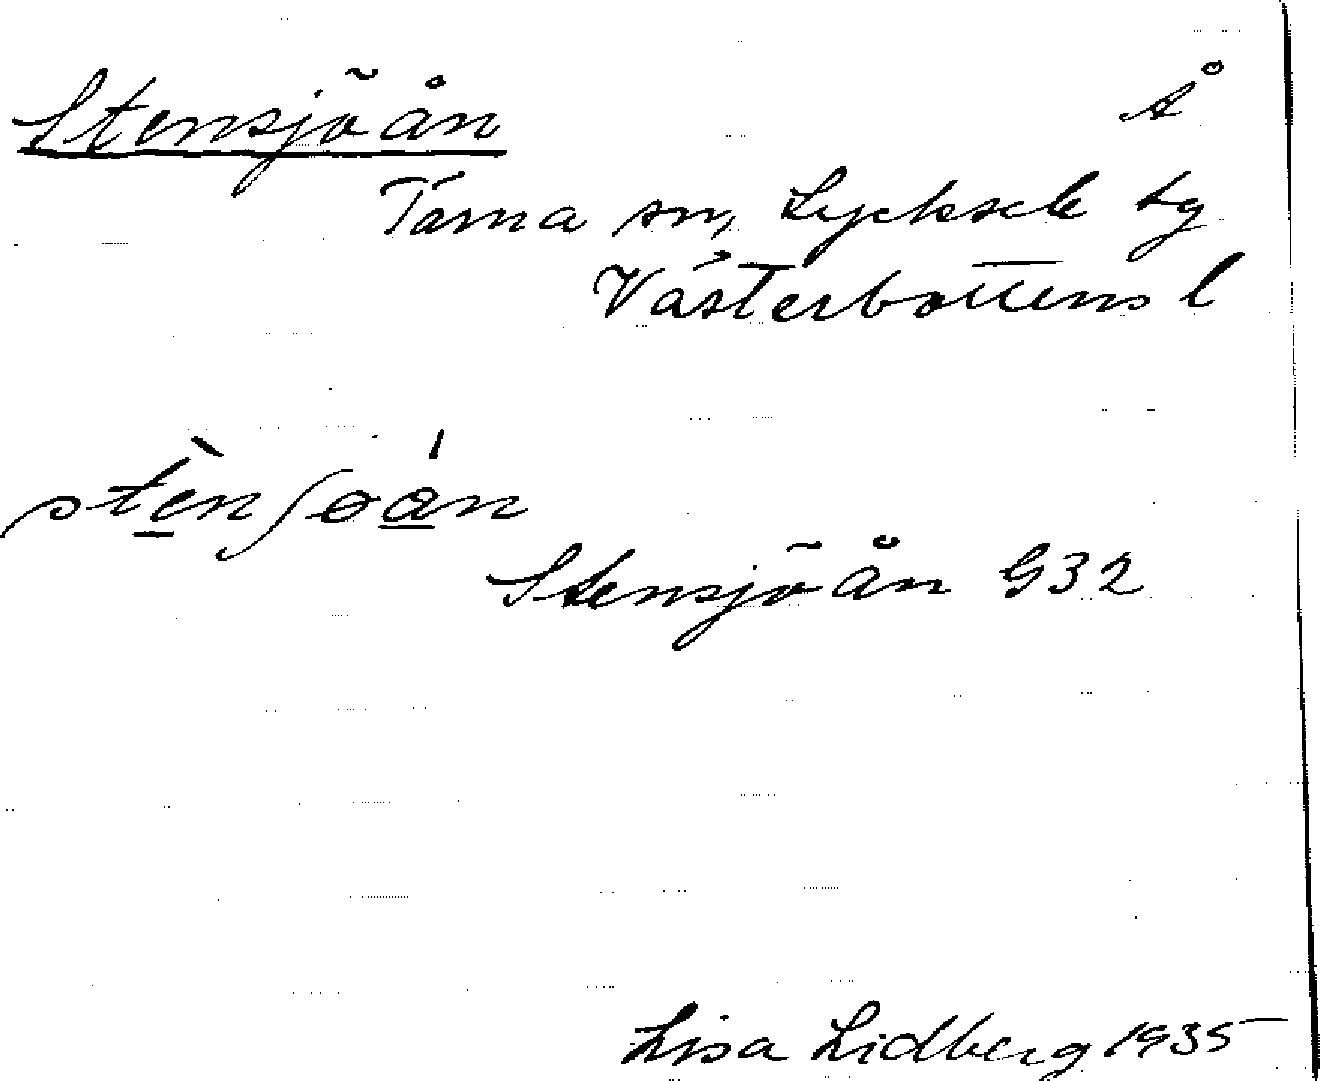 Stensjöån Å
Tärna sn, Lycksele tg
Västerbottens l
stènʃoán
Stensjöån G32
Lisa Lidberg 1935